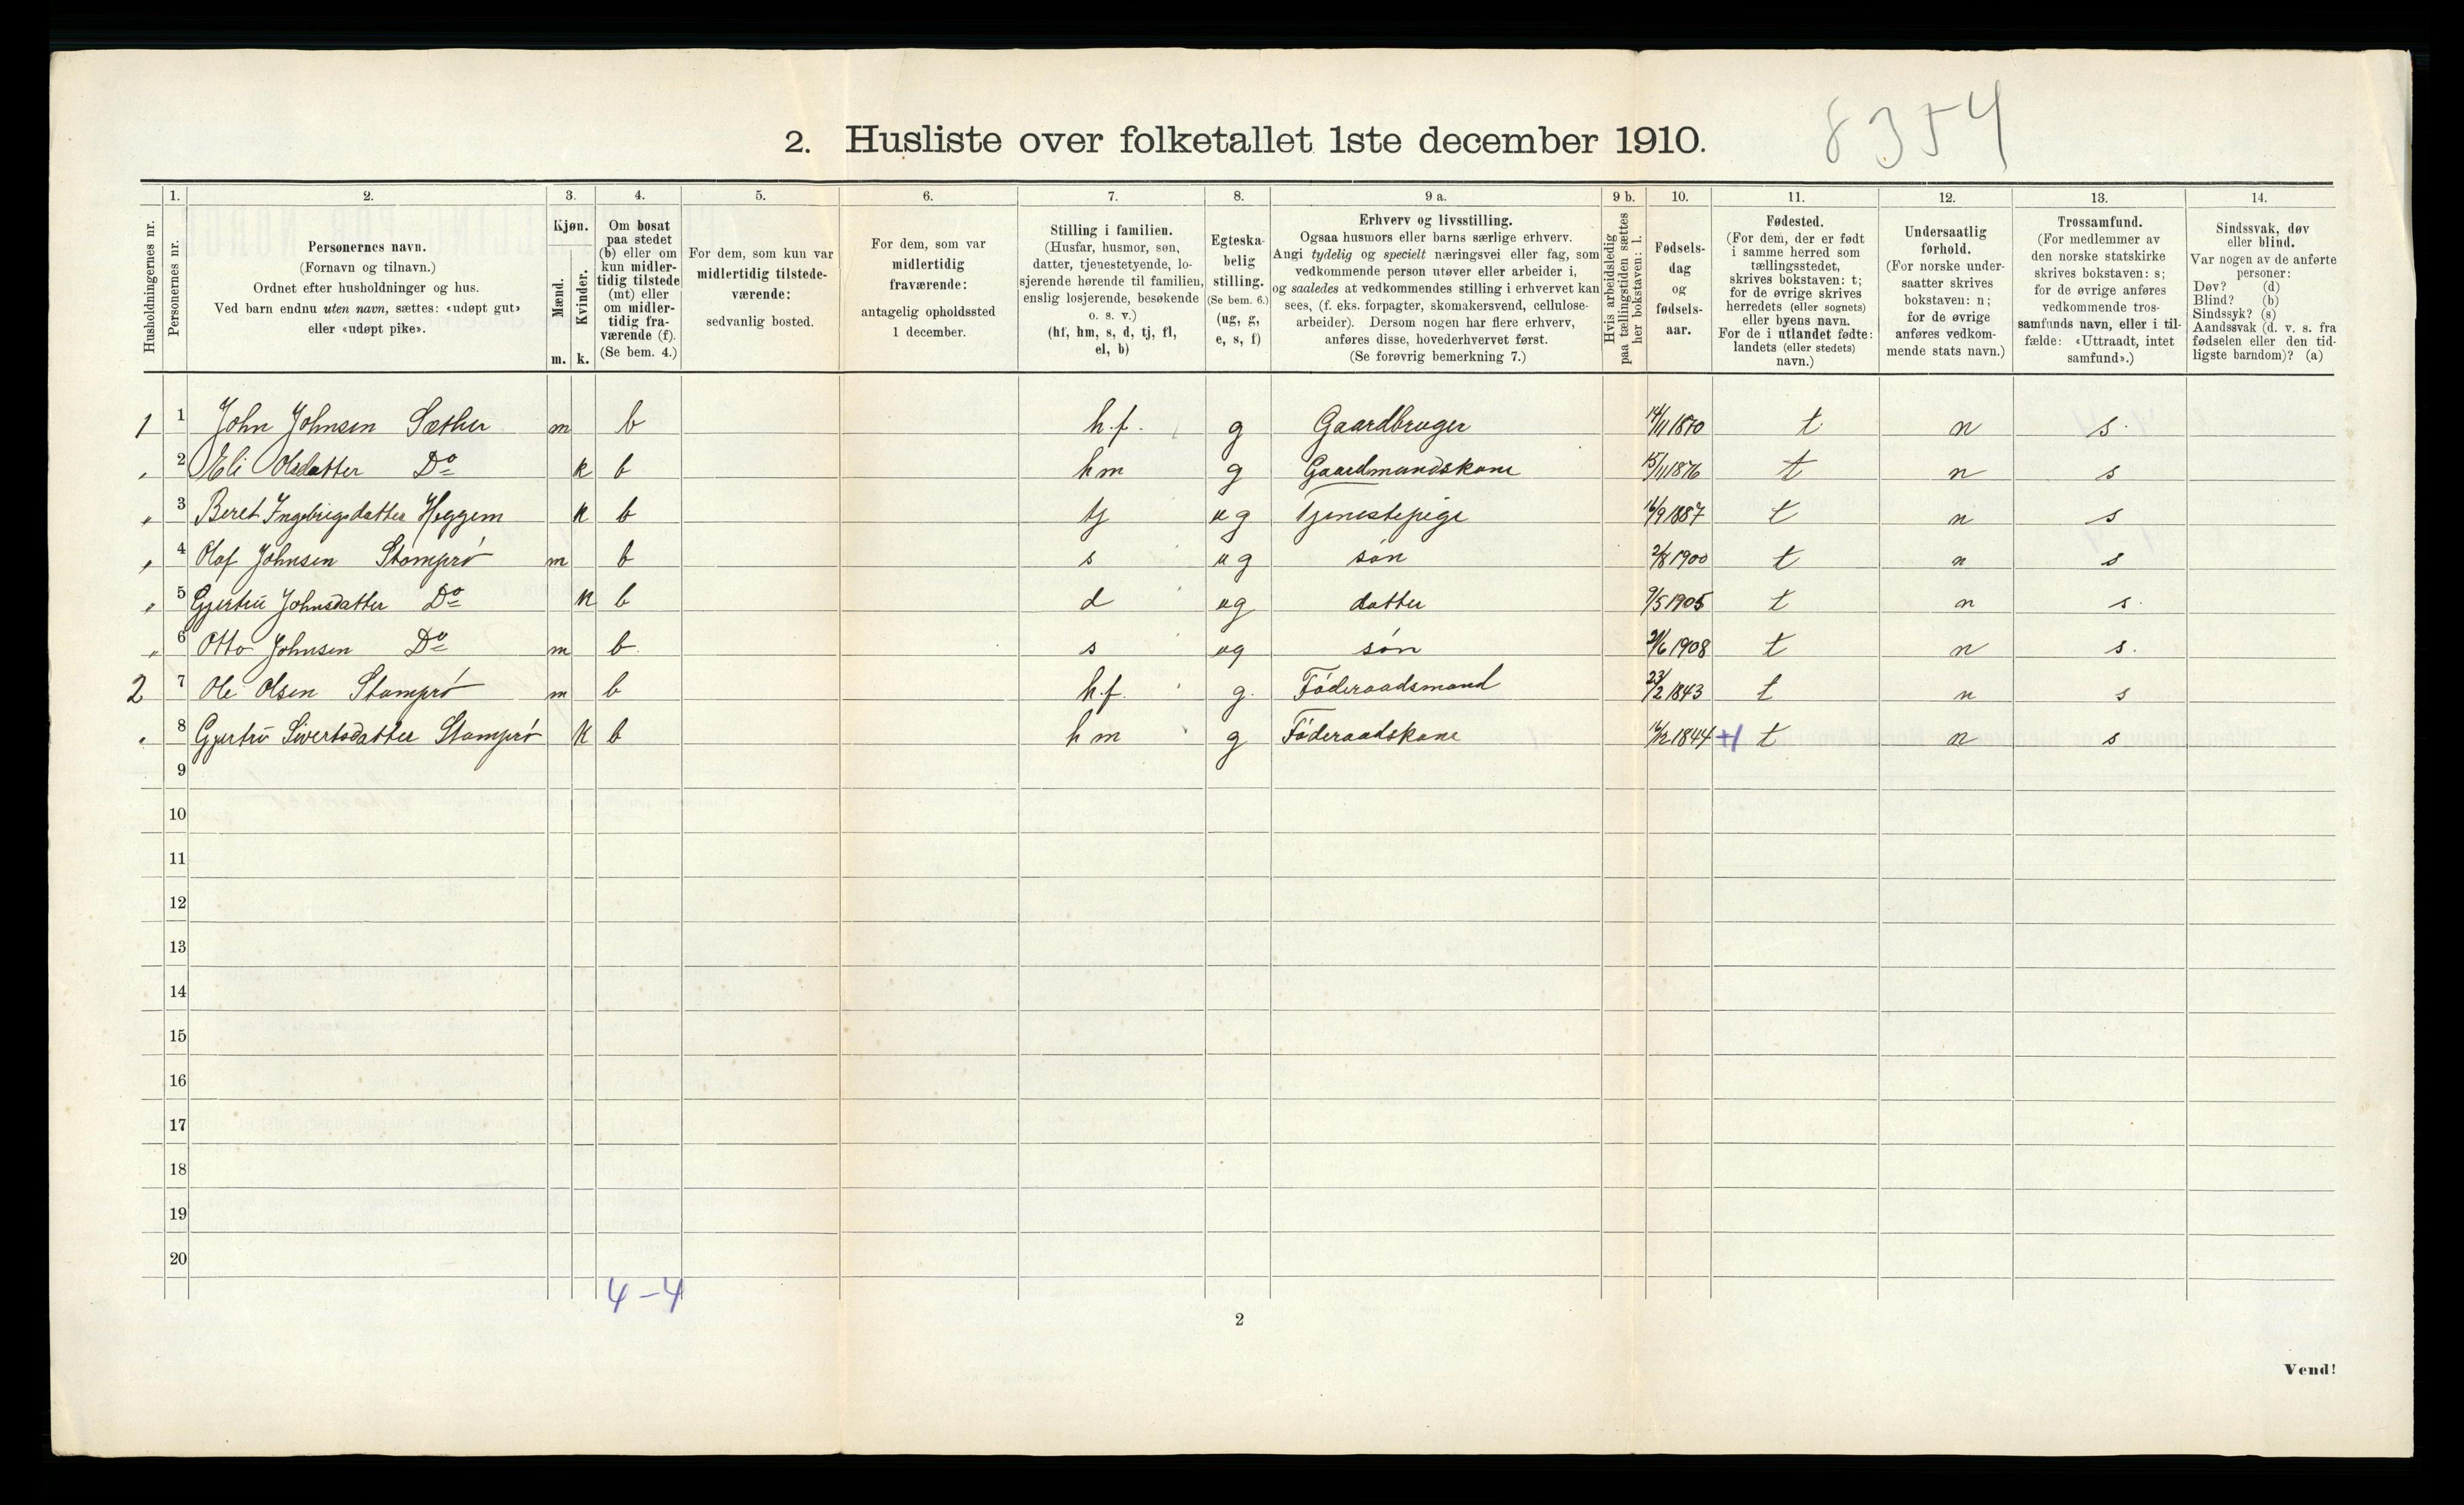 8354
2. Husliste over folketallet 1ste december 1910.
Husholdningernes nr.
1.
Personernes nr.
2.
Personernes navn.
(Fornavn og tilnavn.)
Ordnet efter husholdninger og hus.
Ved barn endnu uten navn, sættes: «udøpt gut»
eller «udøpt pike».
3.
Kjøn.
Mænd.
m.
Kvinder.
k.
4.
Om bosat
paa stedet
(b) eller om
kun midler-
tidig tilstede
(mt) eller
om midler-
tidig fra-
værende (f).
(Se bem. 4.)
5.
For dem, som kun var
midlertidig tilstede-
værende:
sedvanlig bosted.
6.
For dem, som var
midlertidig
fraværende:
antagelig opholdssted
1 december.
7.
Stilling i familien.
(Husfar, husmor, søn,
datter, tjenestetyende, lo-
sjerende hørende til familien,
enslig losjerende, besøkende
o. s. v.)
(hf, hm, s, d, tj, fl,
el, b)
8.
Egteska-
belig
stilling.
(Se bem. 6.)
(ug, g,
e, s, f)
9 a.
Erhverv og livsstilling.
Ogsaa husmors eller barns særlige erhverv.
Angi tydelig og specielt næringsvei eller fag, som
vedkommende person utøver eller arbeider i,
og saaledes at vedkommendes stilling i erhvervet kan
sees, (f. eks. forpagter, skomakersvend, cellulose-
arbeider). Dersom nogen har flere erhverv,
anføres disse, hovederhvervet først.
(Se forøvrig bemerkning 7.)
9 b.
Hvis arbeidsledig
paa tællingstiden sættes
her bokstaven: l.
10.
Fødsels-
dag
og
fødsels-
aar.
11.
Fødested.
(For dem, der er født
i samme herred som
tællingsstedet,
skrives bokstaven: t;
for de øvrige skrives
herredets (eller sognets)
eller byens navn.
For de i utlandet fødte:
landets (eller stedets)
navn.)
12.
Undersaatlig
forhold.
(For norske under-
saatter skrives
bokstaven: n;
for de øvrige
anføres vedkom-
mende stats navn.)
13.
Trossamfund.
(For medlemmer av
den norske statskirke
skrives bokstaven: s;
for de øvrige anføres
vedkommende tros-
samfunds navn, eller i til-
fælde: «Uttraadt, intet
samfund».)
14.
Sindssvak, døv
eller blind.
Var nogen av de anførte
personer:
Døv? (d)
Blind? (b)
Sindssyk? (s)
Aandssvak (d. v. s. fra
fødselen eller den tid-
ligste barndom)? (a)
1 1 John Johnsen Sæther m b h.f. g Gaardbruger 14/11 1870 t n s.
„ 2 Eli Olsdatter Do k b hm g Gaardmandskone 15/11 1876 t n s
„ 3 Beret Ingebrigsdatter Heggem k b tj ug Tjenestepige 16/9 1887 t n s
„ 4 Olaf Johnsen Stamprø m b s ug søn 2/8 1900 t n s
„ 5 Gjertrü Johnsdatter Do k b d ug datter 9/5 1905 t n s.
„ 6 Otto Johnsen Do m b s ug søn 21/6 1908 t n s.
2 7 Ole Olsen Stamprø m b h.f. g. Føderaadsmand 23/2 1843 t n s
„ 8 Gjertrü Sivertsdatter Stamprø k b hm g Føderaadskone 16/12 1844 +1 t n s
9
10
11
12
13
14
15
16
17
18
19
20
4-4
2
Vend!